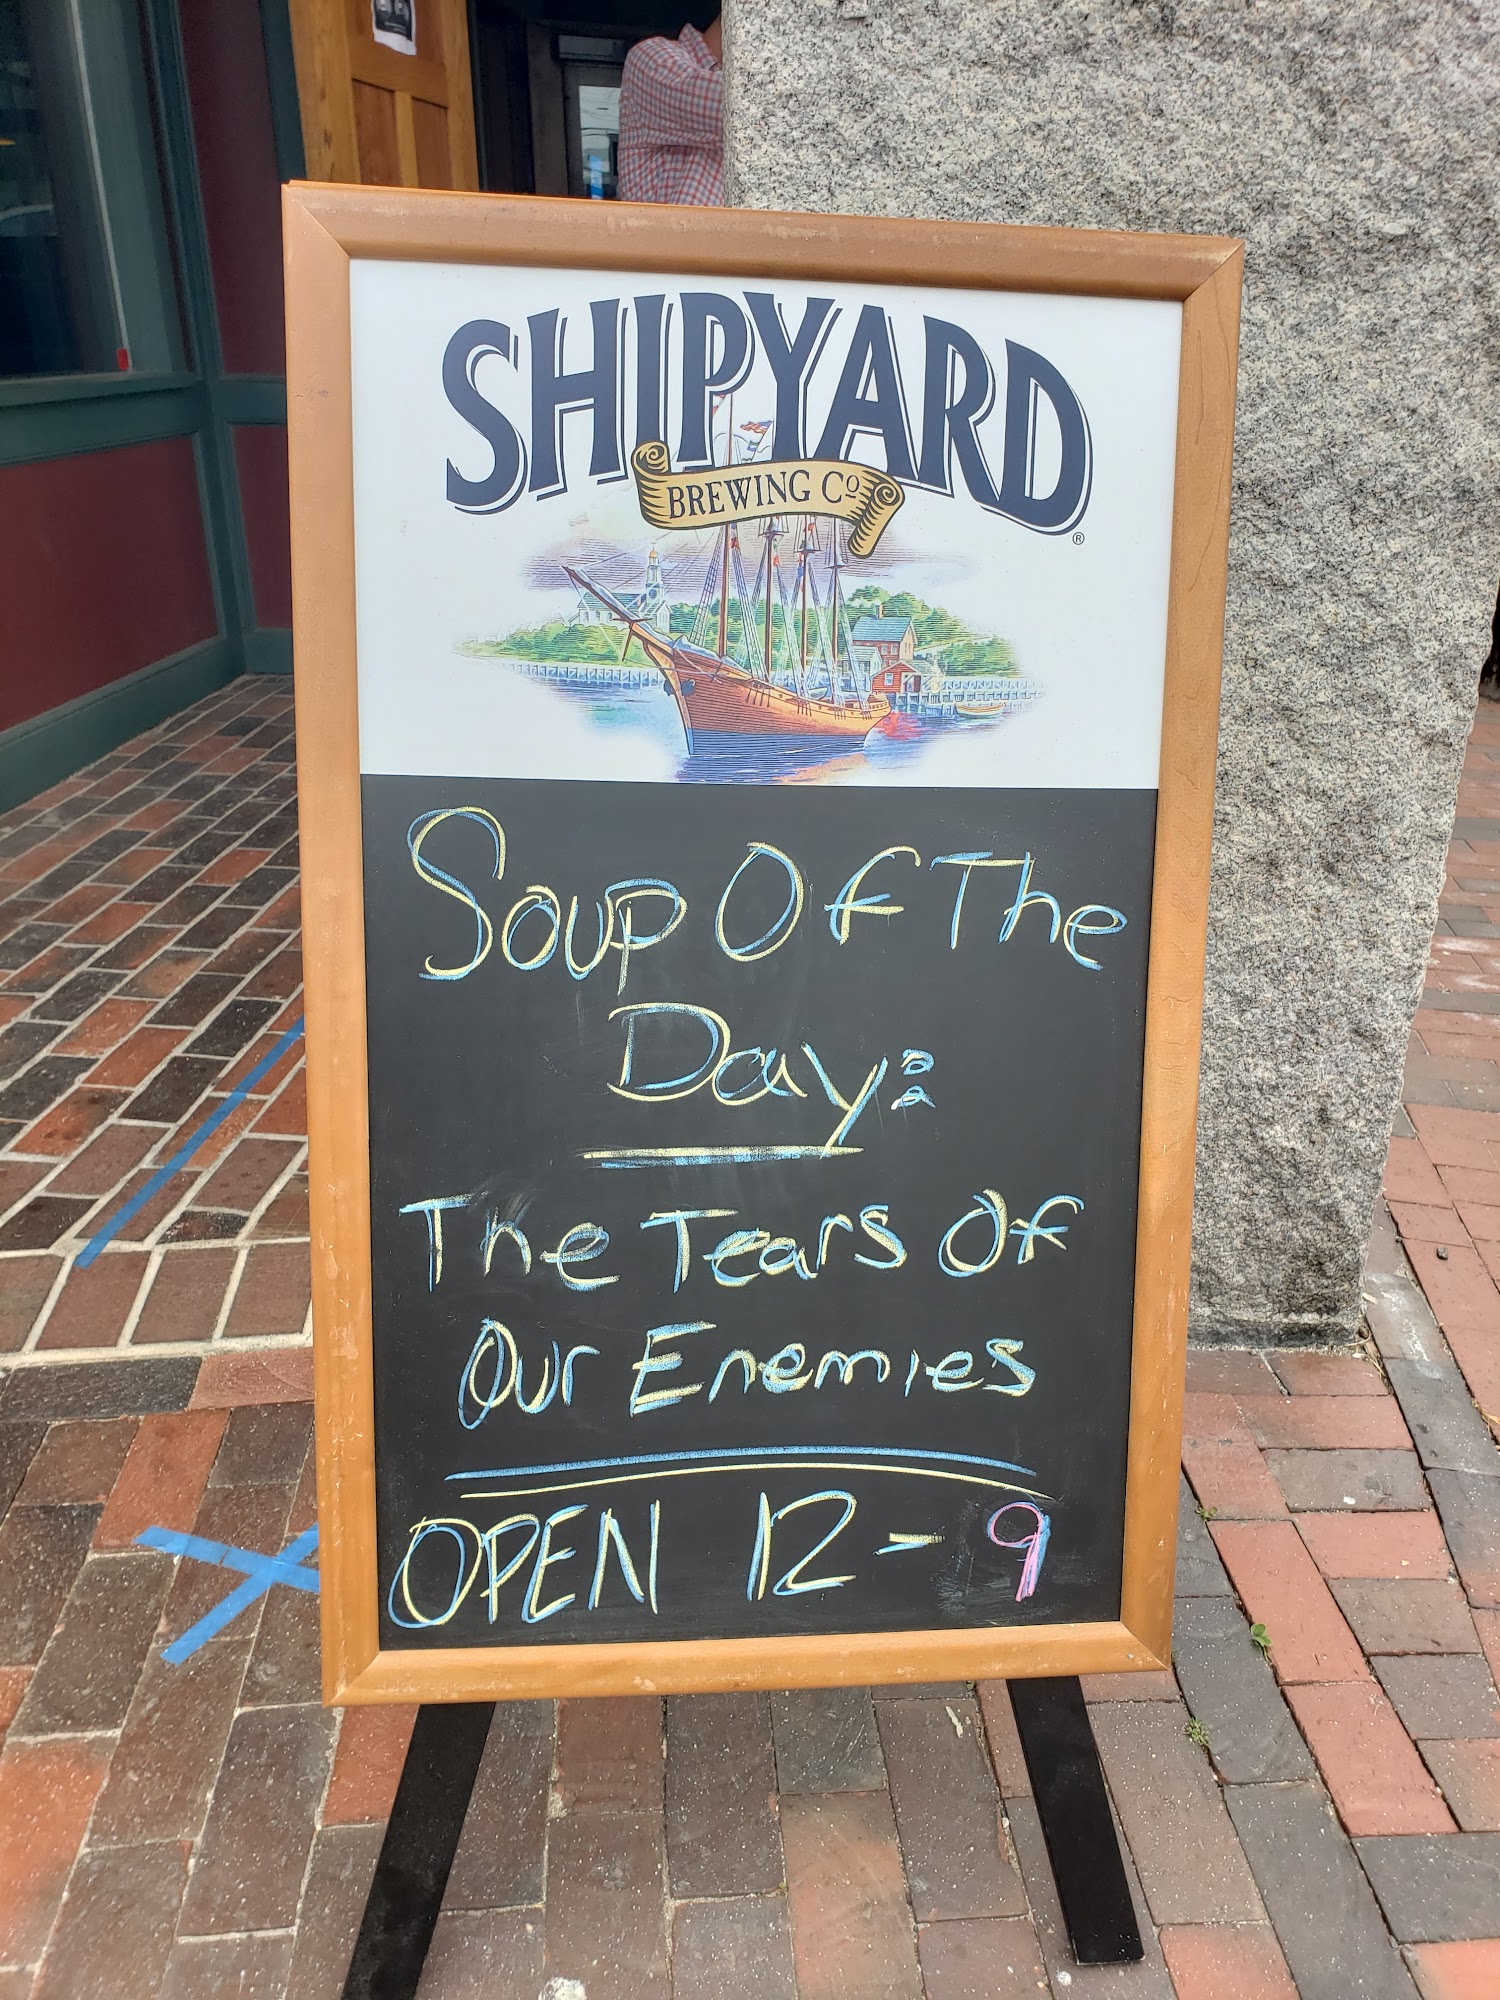 SHIPYARD
BREWING Co
®
Soup Of The
Day:
The Tears Of
Our Enemies
OPEN 12-9